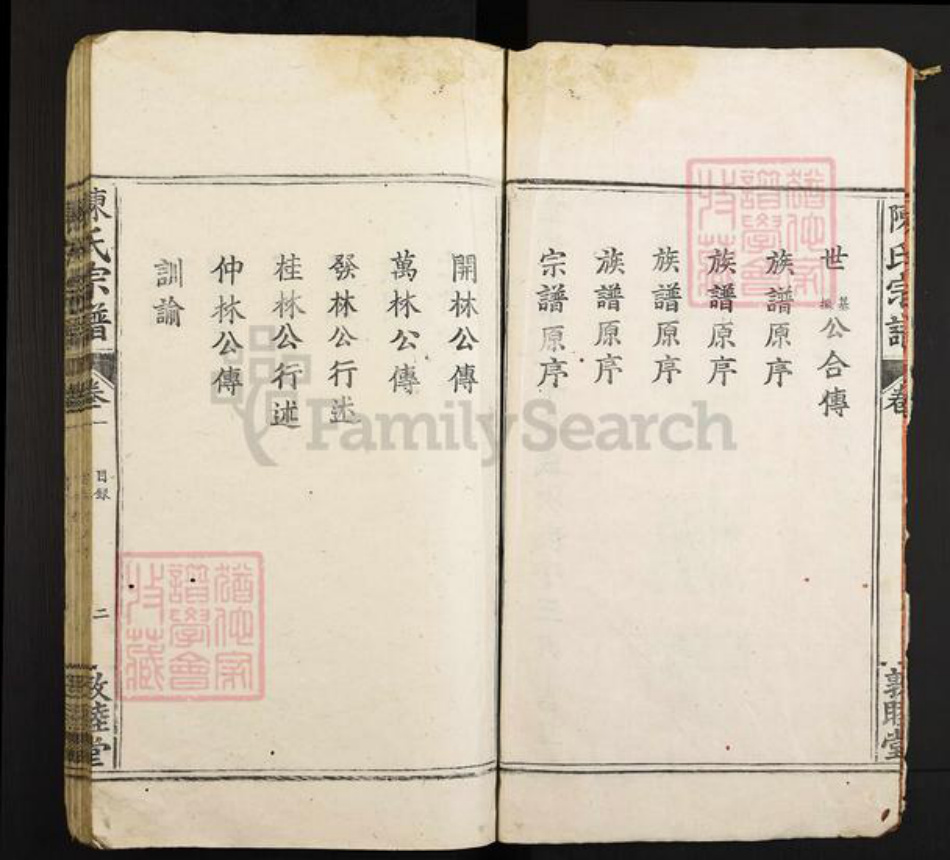 陳氏宗譜
卷
敦睦堂
世基公合傳
族譜原序
族譜原序
族譜原序
族譜原序
宗譜原序
開林公傳
萬林公傳
發林公行述
桂林公行述
仲林公傳
訓諭
陳氏宗譜
卷一
目録
二
敦睦堂
譜學會
收藏
譜學會
收藏
FamilySearch